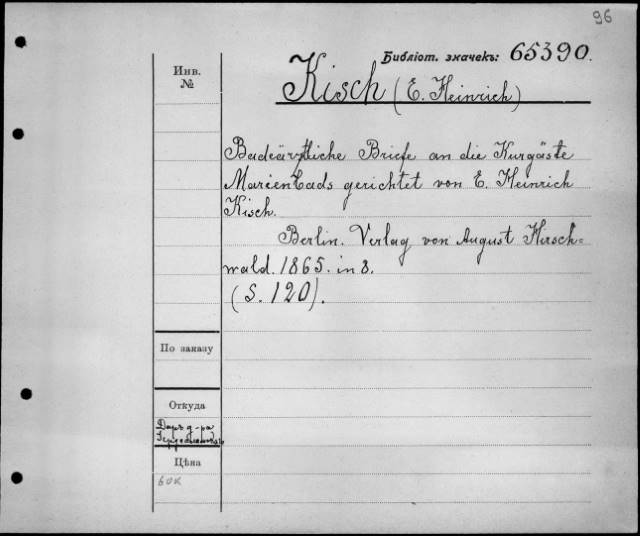 96
Библіот. значекъ: 65390.
Инв.
№
Kisch (E. Heinrich)
Badeärztliche Briefe an die Kurgäste
Marienbads gerichtet von E. Heinrich
Kisch.
Berlin. Verlag von August Hirsch=
wald. 1865. in 8.
(S. 120).
По заказу
Откуда
Даръ д-ра
Цѣна
60к